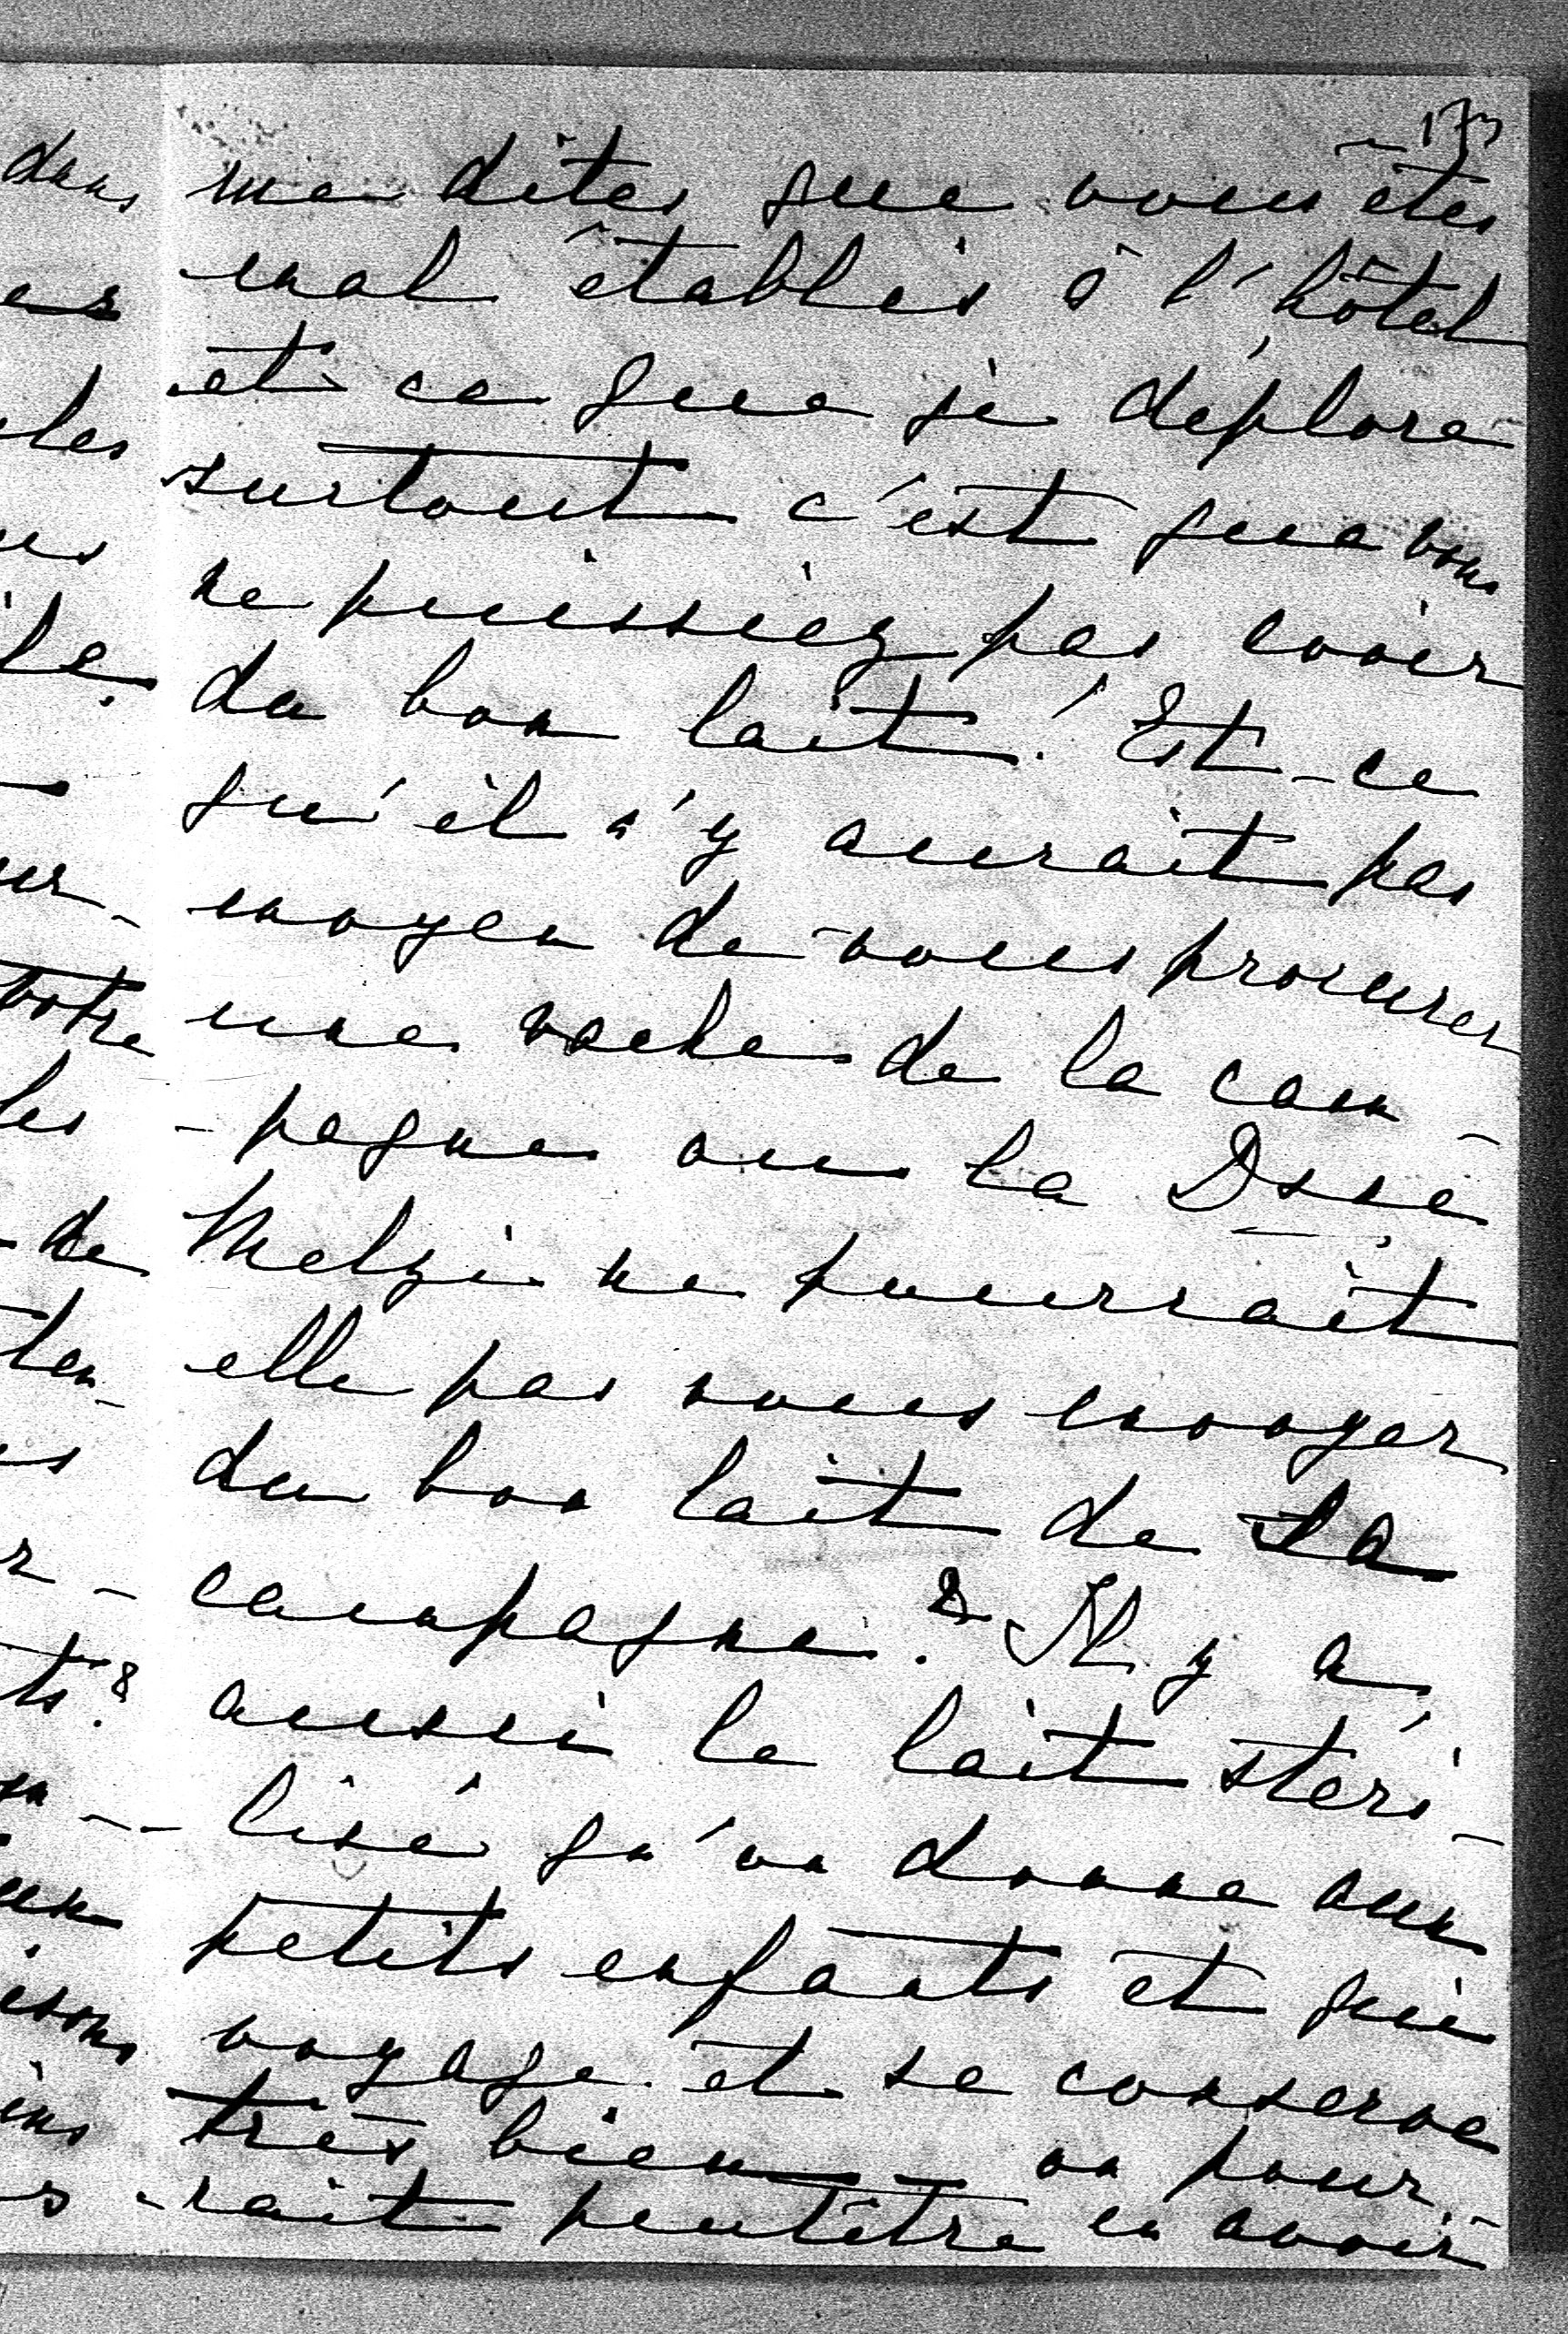 173
me dites que vous êtes
mal établis à l'hôtel
et ce que je déplore
surtout c'est que vous
ne puissiez pas avoir
du bon lait! Est-ce
qu'il n'y aurait pas
moyen de vous procurer
une vache de la cam-
-pagne ou la Dsse
Melzi ne pourrait
elle pas vous envoyer
du bon lait de la
campagne? Il y a
aussi le lait stéri-
-lisé qu'on donne aux
petits enfants et qui
voyage et se conserve
très bien – on pour-
-rait peutêtre en avoir